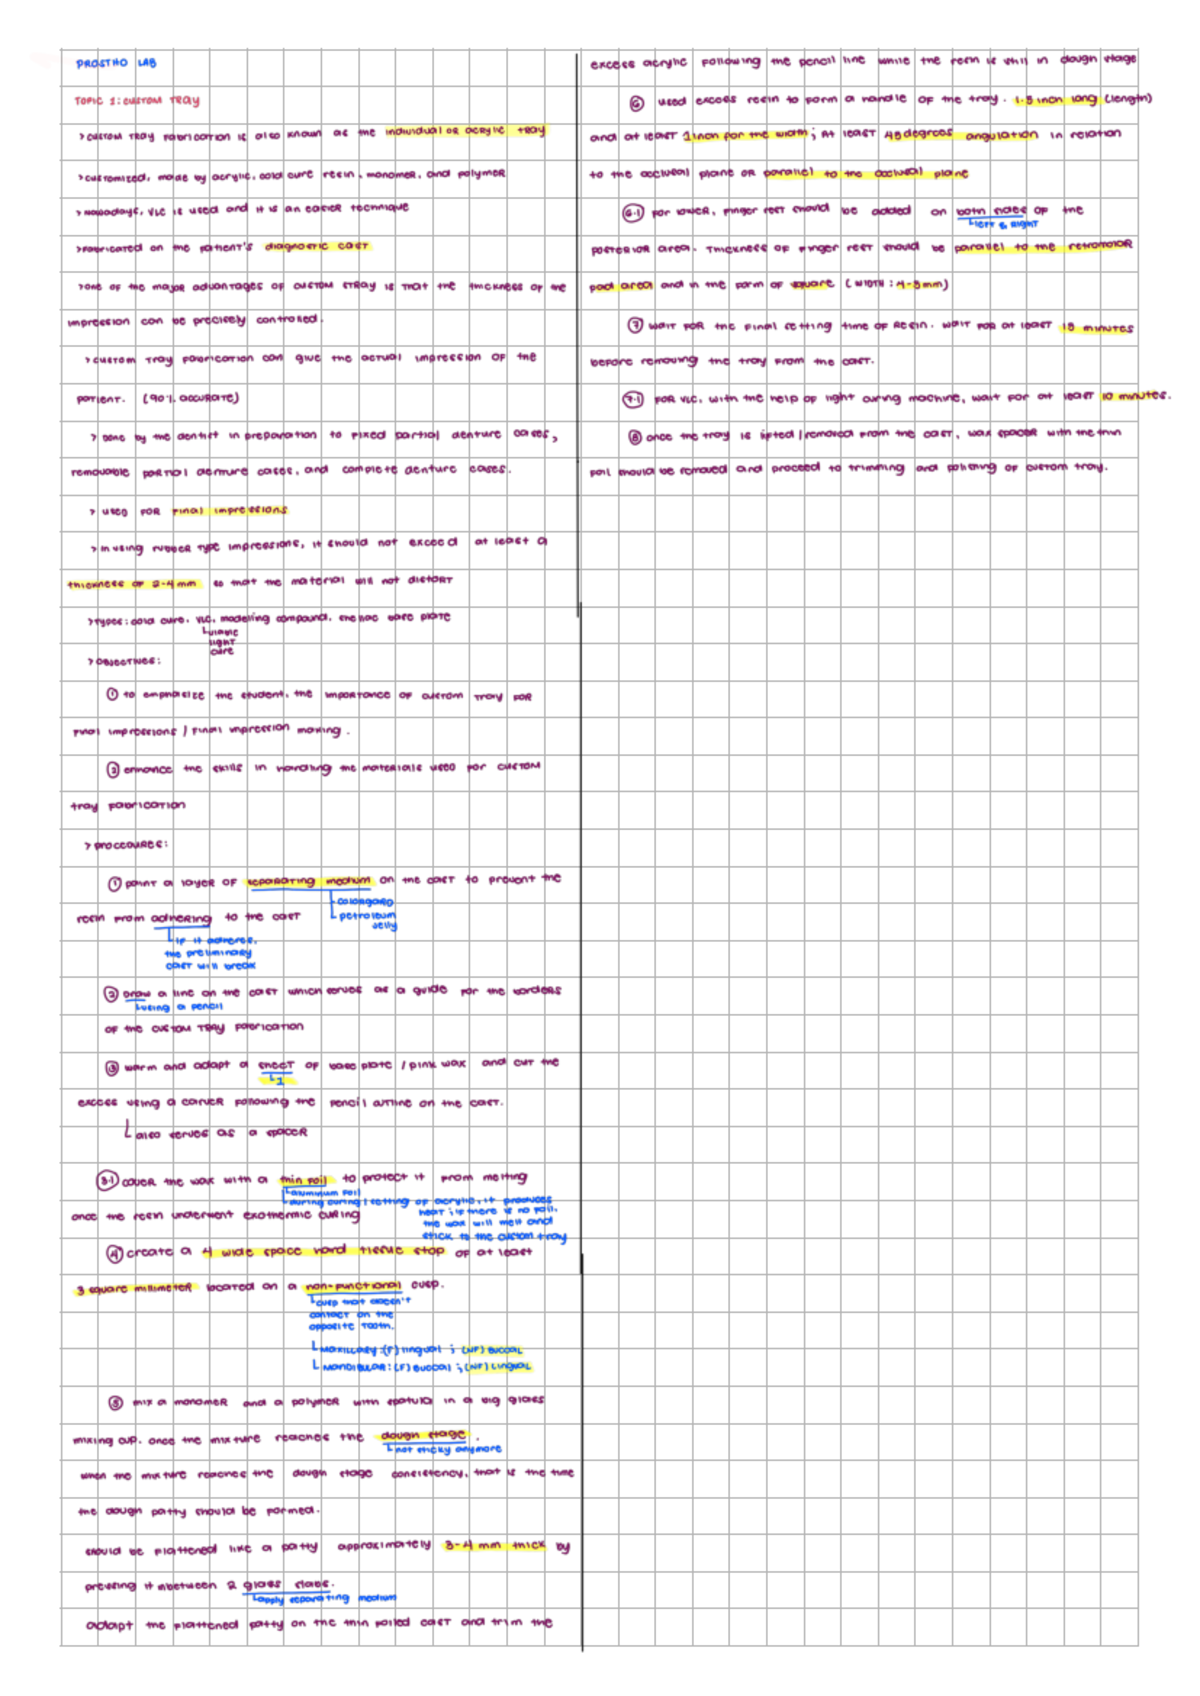 PROSTHO LAB
TOPIC 1: CUSTOM TRAY
> CUSTOM TRAY FABRICATION IS ALSO KNOWN AS THE INDIVIDUAL OR ACRYLIC TRAY
> CUSTOMIZED, MADE BY ACRYLIC, COLD CURE RESIN, MONOMER, AND POLYMER
> NOWADAYS, VLC IS USED AND IT IS AN EASIER TECHNIQUE
> FABRICATED ON THE PATIENT'S DIAGNOSTIC CAST
> ONE OF THE MAJOR ADVANTAGES OF CUSTOM TRAY IS THAT THE THICKNESS OF THE
IMPRESSION CAN BE PRECISELY CONTROLLED.
> CUSTOM TRAY FABRICATION CAN GIVE THE ACTUAL IMPRESSION OF THE
PATIENT. (90% ACCURATE)
> DONE BY THE DENTIST IN PREPARATION TO FIXED PARTIAL DENTURE CASES,
REMOVABLE PARTIAL DENTURE CASES, AND COMPLETE DENTURE CASES.
> USED FOR FINAL IMPRESSIONS
> IN USING RUBBER TYPE IMPRESSIONS, IT SHOULD NOT EXCEED AT LEAST A
THICKNESS OF 2-4 mm SO THAT THE MATERIAL WILL NOT DISTORT
> TYPES: COLD CURE, VLC, MODELING COMPOUND, SHELLAC BASE PLATE
VISIBLE
LIGHT
CURE
> OBJECTIVES:
① TO EMPHASIZE THE STUDENT, THE IMPORTANCE OF CUSTOM TRAY FOR
FINAL IMPRESSIONS / FINAL IMPRESSION MAKING.
② ENHANCE THE SKILLS IN HANDLING THE MATERIALS USED FOR CUSTOM
TRAY FABRICATION
> PROCEDURES:
① PAINT A LAYER OF SEPARATING MEDIUM ON THE CAST TO PREVENT THE
COLDGARD
RESIN FROM ADHERING TO THE CAST
PETROLEUM
JELLY
IF IT ADHERES,
THE PRELIMINARY
CAST WILL BREAK
② DRAW A LINE ON THE CAST WHICH SERVES AS A GUIDE FOR THE BORDERS
USING A PENCIL
OF THE CUSTOM TRAY FABRICATION
③ WARM AND ADAPT A SHEET OF BASE PLATE / PINK WAX AND CUT THE
1
EXCESS USING A CARVER FOLLOWING THE PENCIL OUTLINE ON THE CAST.
ALSO SERVES AS A SPACER
3.1 COVER THE WAX WITH A THIN FOIL TO PROTECT IT FROM MELTING
ALUMINUM FOIL
DURING CURING / SETTING OF ACRYLIC, IT PRODUCES
HEAT; IF THERE IS NO FOIL,
THE WAX WILL MELT AND
STICK TO THE CUSTOM TRAY
ONCE THE RESIN UNDERWENT EXOTHERMIC CURING
④ CREATE A 4 WIDE SPACE HARD TISSUE STOP OF AT LEAST
3 SQUARE MILLIMETER LOCATED ON A NON-FUNCTIONAL CUSP.
CUSP THAT DOESN'T
CONTACT ON THE
OPPOSITE TOOTH.
MAXILLARY: (F) LINGUAL ; (NF) BUCCAL
MANDIBULAR: (F) BUCCAL ; (NF) LINGUAL
⑤ MIX A MONOMER AND A POLYMER WITH SPATULA IN A BIG GLASS
MIXING CUP. ONCE THE MIXTURE REACHES THE DOUGH STAGE.
NOT STICKY ANYMORE
WHEN THE MIXTURE REACHES THE DOUGH STAGE CONSISTENCY, THAT IS THE TIME
THE DOUGH PATTY SHOULD BE FORMED.
SHOULD BE FLATTENED LIKE A PATTY APPROXIMATELY 3-4 mm THICK BY
PRESSING IT INBETWEEN 2 GLASS SLABS.
APPLY SEPARATING MEDIUM
ADAPT THE FLATTENED PATTY ON THE THIN FOILED CAST AND TRIM THE
EXCESS ACRYLIC FOLLOWING THE PENCIL LINE WHILE THE RESIN IS STILL IN DOUGH STAGE
⑥ USED EXCESS RESIN TO FORM A HANDLE OF THE TRAY. 1.5 INCH LONG (LENGTH)
AND AT LEAST 1 INCH FOR THE WIDTH; AT LEAST 45 DEGREES ANGULATION IN RELATION
TO THE OCCLUSAL PLANE OR PARALLEL TO THE OCCLUSAL PLANE
6.1 FOR LOWER, FINGER REST SHOULD BE ADDED ON BOTH SIDES OF THE
LEFT & RIGHT
POSTERIOR AREA. THICKNESS OF FINGER REST SHOULD BE PARALLEL TO THE RETROMOLAR
PAD AREA AND IN THE FORM OF SQUARE (WIDTH: 4-5mm)
⑦ WAIT FOR THE FINAL SETTING TIME OF RESIN. WAIT FOR AT LEAST 15 MINUTES
BEFORE REMOVING THE TRAY FROM THE CAST.
7.1 FOR VLC, WITH THE HELP OF LIGHT CURING MACHINE, WAIT FOR AT LEAST 10 MINUTES.
⑧ ONCE THE TRAY IS LIFTED / REMOVED FROM THE CAST, WAX SPACER WITH THE THIN
FOIL SHOULD BE REMOVED AND PROCEED TO TRIMMING AND POLISHING OF CUSTOM TRAY.